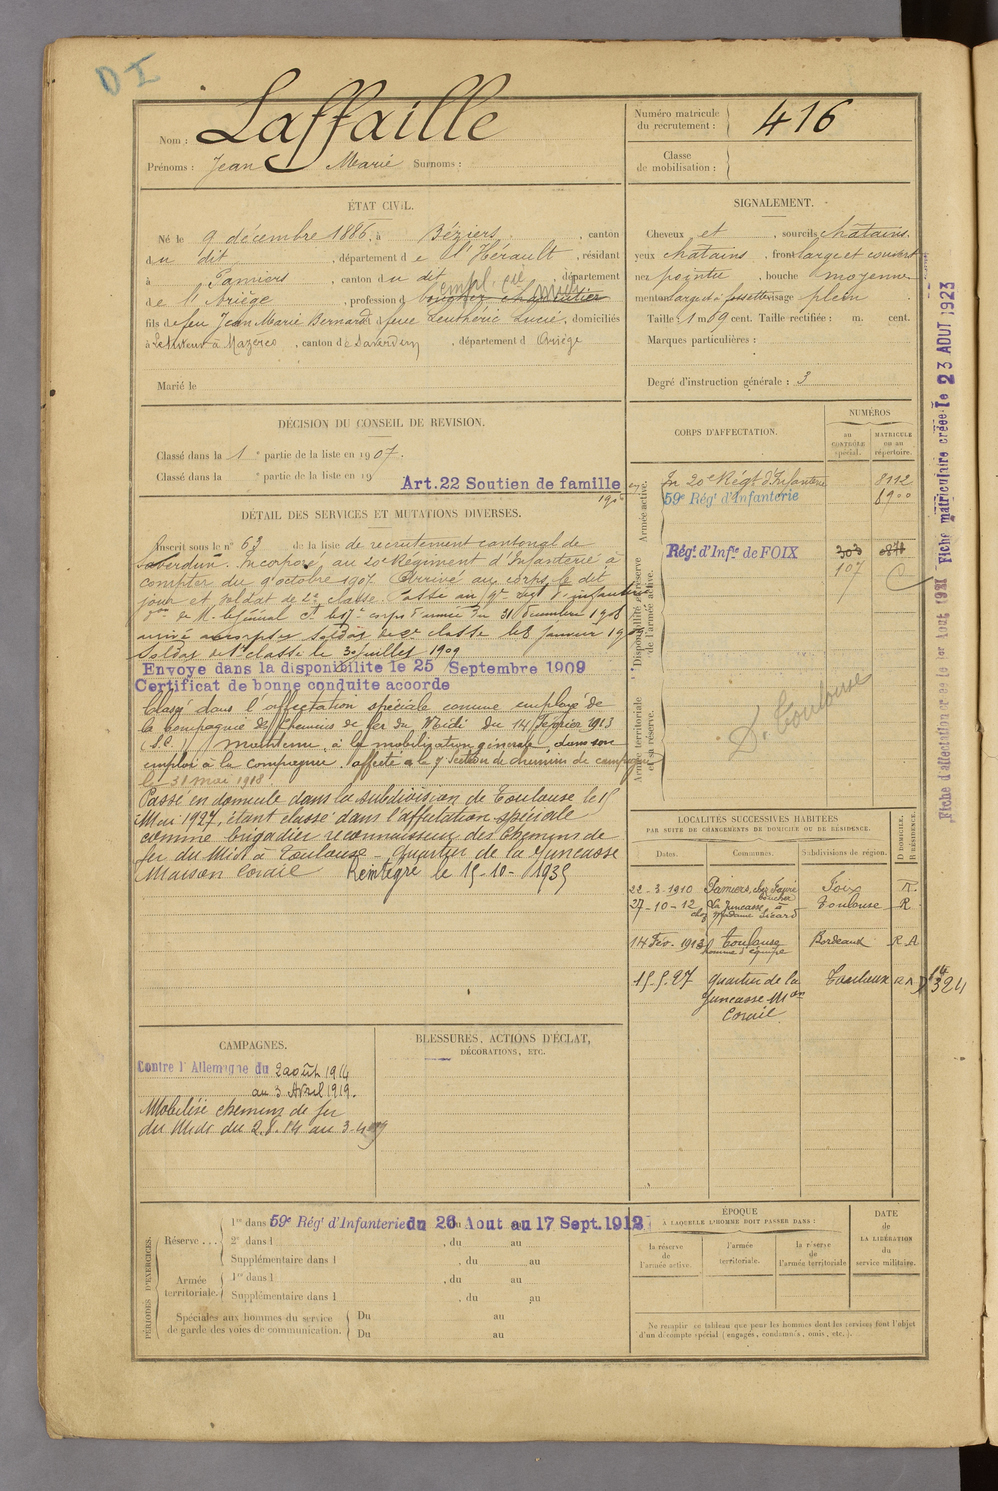 D I
Nom : Laffaille
Prénoms : Jean Marie Surnoms :
Numéro matricule du recrutement : 416
Classe de mobilisation :
ÉTAT CIVIL.
Né le 9 décembre 1886, à Béziers, canton
du dit, département de l'Hérault, résidant
à Pamiers, canton du dit, département
empl. cie midi
de l'Ariège, profession d boucher charcutier
fils de feu Jean Marie Bernard et de feue Lucie, domiciliés
à Mazères, canton de Saverdun, département d Ariège
Marié le
SIGNALEMENT.
Cheveux et , sourcils châtains.
yeux châtains, front large et couvert
nez pointu, bouche moyenne
menton large et à fossette visage plein
Taille : 1 m 69 cent. Taille rectifiée : m. cent.
Marques particulières :
Degré d'instruction générale : 3
DÉCISION DU CONSEIL DE REVISION.
Classé dans la 1e partie de la liste en 1907.
Classé dans la e partie de la liste en 19
Art. 22 Soutien de famille
DÉTAIL DES SERVICES ET MUTATIONS DIVERSES.
Inscrit sous le n° 63 de la liste de recrutement cantonal de
Saverdun. Incorporé au 20e Régiment d'Infanterie à
compter du 9 octobre 1907. Arrivé au corps le dit
jour et soldat de 2e classe. Passé au 59e Régt d'infanterie
don de M. le Général Ct le 17e corps d'armée du 31 décembre 1908
arrivé au corps et soldat de 2e classe le 8 janvier 1909
Soldat de 1e classe le 30 juillet 1909
Envoyé dans la disponibilité le 25 Septembre 1909
Certificat de bonne conduite accordé
Classé dans l'affectation spéciale comme employé de
la compagnie des Chemins de fer du Midi du 14 Février 1913
maintenu, à la mobilisation générale, dans son
emploi à la compagnie. Affecté à la 9e Section de chemins de campagne
le 31 mai 1918
Passé en domicile dans la subdivision de Toulouse le 15
Mai 1927, étant classé dans l'affectation spéciale
comme brigadier reconnaisseur des Chemins de
fer du Midi à Toulouse - Quartier de la Juncasse
Maison Corail Réintégré le 15-10-1935
CORPS D'AFFECTATION.
NUMÉROS
au CONTRÔLE spécial.
MATRICULE ou au répertoire.
Armée active.
Au 20e Régt d'Infanterie 8112
59e Régt d'Infanterie 6900
Disponibilité et réserve de l'armée active.
Régt d'Infie de FOIX 303 0878
107
Armée territoriale et sa réserve.
D. Toulouse
LOCALITÉS SUCCESSIVES HABITÉES
PAR SUITE DE CHANGEMENTS DE DOMICILE OU DE RÉSIDENCE.
Dates. Communes. Subdivisions de région. D DOMICILE, R RÉSIDENCE.
22-3-1910 Pamiers, chez Fauré boucher Foix R.
27-10-12 La Juncasse à chez Madame Sicard Toulouse R
14 Fév. 1913 Toulouse homme d'équipe Bordeaux R.A
15-5-27 quartier de la Juncasse Mon Corail. Toulouse R A
14
324
CAMPAGNES.
Contre l'Allemagne du 2 août 1914
au 3 Avril 1919.
Mobilisé chemins de fer
du Midi du 2.8.14 au 3-4-1919
BLESSURES, ACTIONS D'ÉCLAT,
DÉCORATIONS, ETC.
PÉRIODES D'EXERCICES.
Réserve ...
1re dans 59e Régt d'Infanterie du 26 Aout au 17 Sept. 1912
2e dans l , du au
Supplémentaire dans l , du au
Armée territoriale.
1re dans l , du au
Supplémentaire dans l , du au
Spéciales aux hommes du service de garde des voies de communication.
Du au
Du au
ÉPOQUE
À LAQUELLE L'HOMME DOIT PASSER DANS :
la réserve de l'armée active.
l'armée territoriale.
la réserve de l'armée territoriale
DATE de LA LIBÉRATION du service militaire.
Ne remplir ce tableau que pour les hommes dont les services font l'objet
d'un décompte spécial (engagés, condamnés, omis, etc.).
Fiche d'affectation créée le 1er Aout 1921 Fiche matriculaire créée le 23 AOUT 1923